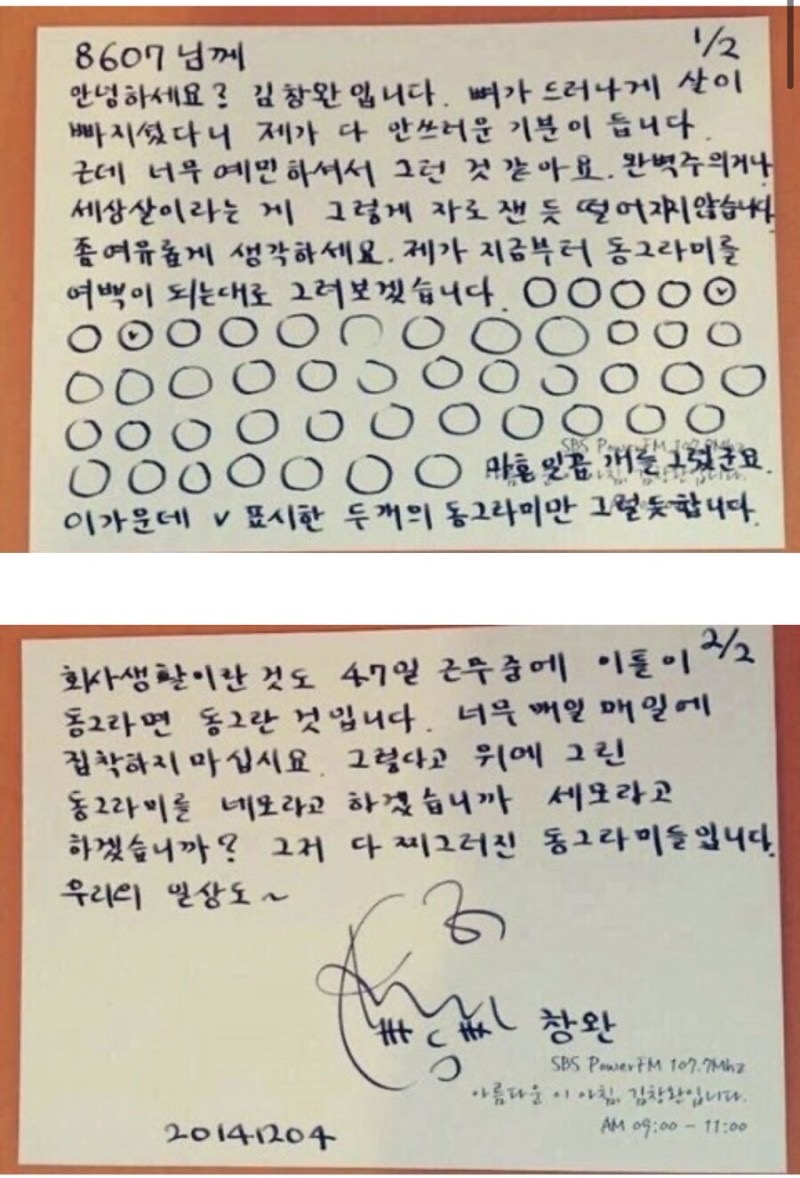 1/2
8607님께
안녕하세요? 김창완입니다. 뼈가 드러나게 살이
빠지셨다니 제가 다 안쓰러운 기분이 듭니다.
근데 너무 예민하셔서 그런 것 같아요. 완벽주의거나
세상살이라는 게 그렇게 자로 잰 듯 떨어지지않습니다
좀 여유롭게 생각하세요. 제가 지금부터 동그라미를
여백이 되는대로 그려보겠습니다. ○○○○○
○○○○○○○○○○○○
○○○○○○○○○○○○
○○○○○○○○○○○
SBS PowerFM 107.7Mhz
○○○○○○○ 마흔 일곱 개를 그렸군요.
이가운데 v 표시한 두개의 동그라미만 그럴듯합니다.
2/2
회사생활이란 것도 47일 근무중에 이틀이
동그라면 동그란 것입니다. 너무 매일 매일에
집착하지 마십시요. 그렇다고 위에 그린
동그라미를 네모라고 하겠습니까 세모라고
하겠습니까? 그저 다 찌그러진 동그라미들입니다.
우리의 일상도~
창완
SBS PowerFM 107.7Mhz
아름다운 이 아침, 김창완입니다.
AM 09:00 - 11:00
20141204